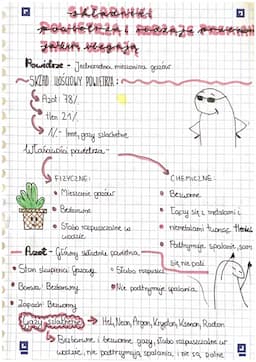 Składniki
powietrza i rodzaje przemian
jakim ulegają
Powietrze - Jednorodna mieszanina gazów
SKŁAD ILOŚCIOWY POWIETRZA:
Azot 78%
tlen 21%
1% - Inne, gazy szlachetne
Właściwości powietrza -
FIZYCZNE:
• Mieszanina gazów
• Bezbarwne
• Słabo rozpuszczalne w
wodzie
CHEMICZNE:
• Bezwonne
• Łączy się z metalami i
niemetalami tworząc tlenki
• Podtrzymuje spalanie, sam
się nie pali
Azot - Główny składnik powietrza
• Stan skupienia: Gazowy
• Barwa: Bezbarwny
• Zapach: Bezwonny
• Słabo rozpuszcz
• Nie podtrzymuje spalania
Gazy szlachetne → Hel, Neon, Argon, Krypton, Ksenon, Radon
Bezbarwne i bezwonne, gazy, słabo rozpuszczalne w
wodzie, nie podtrzymują spalania, i nie są palne